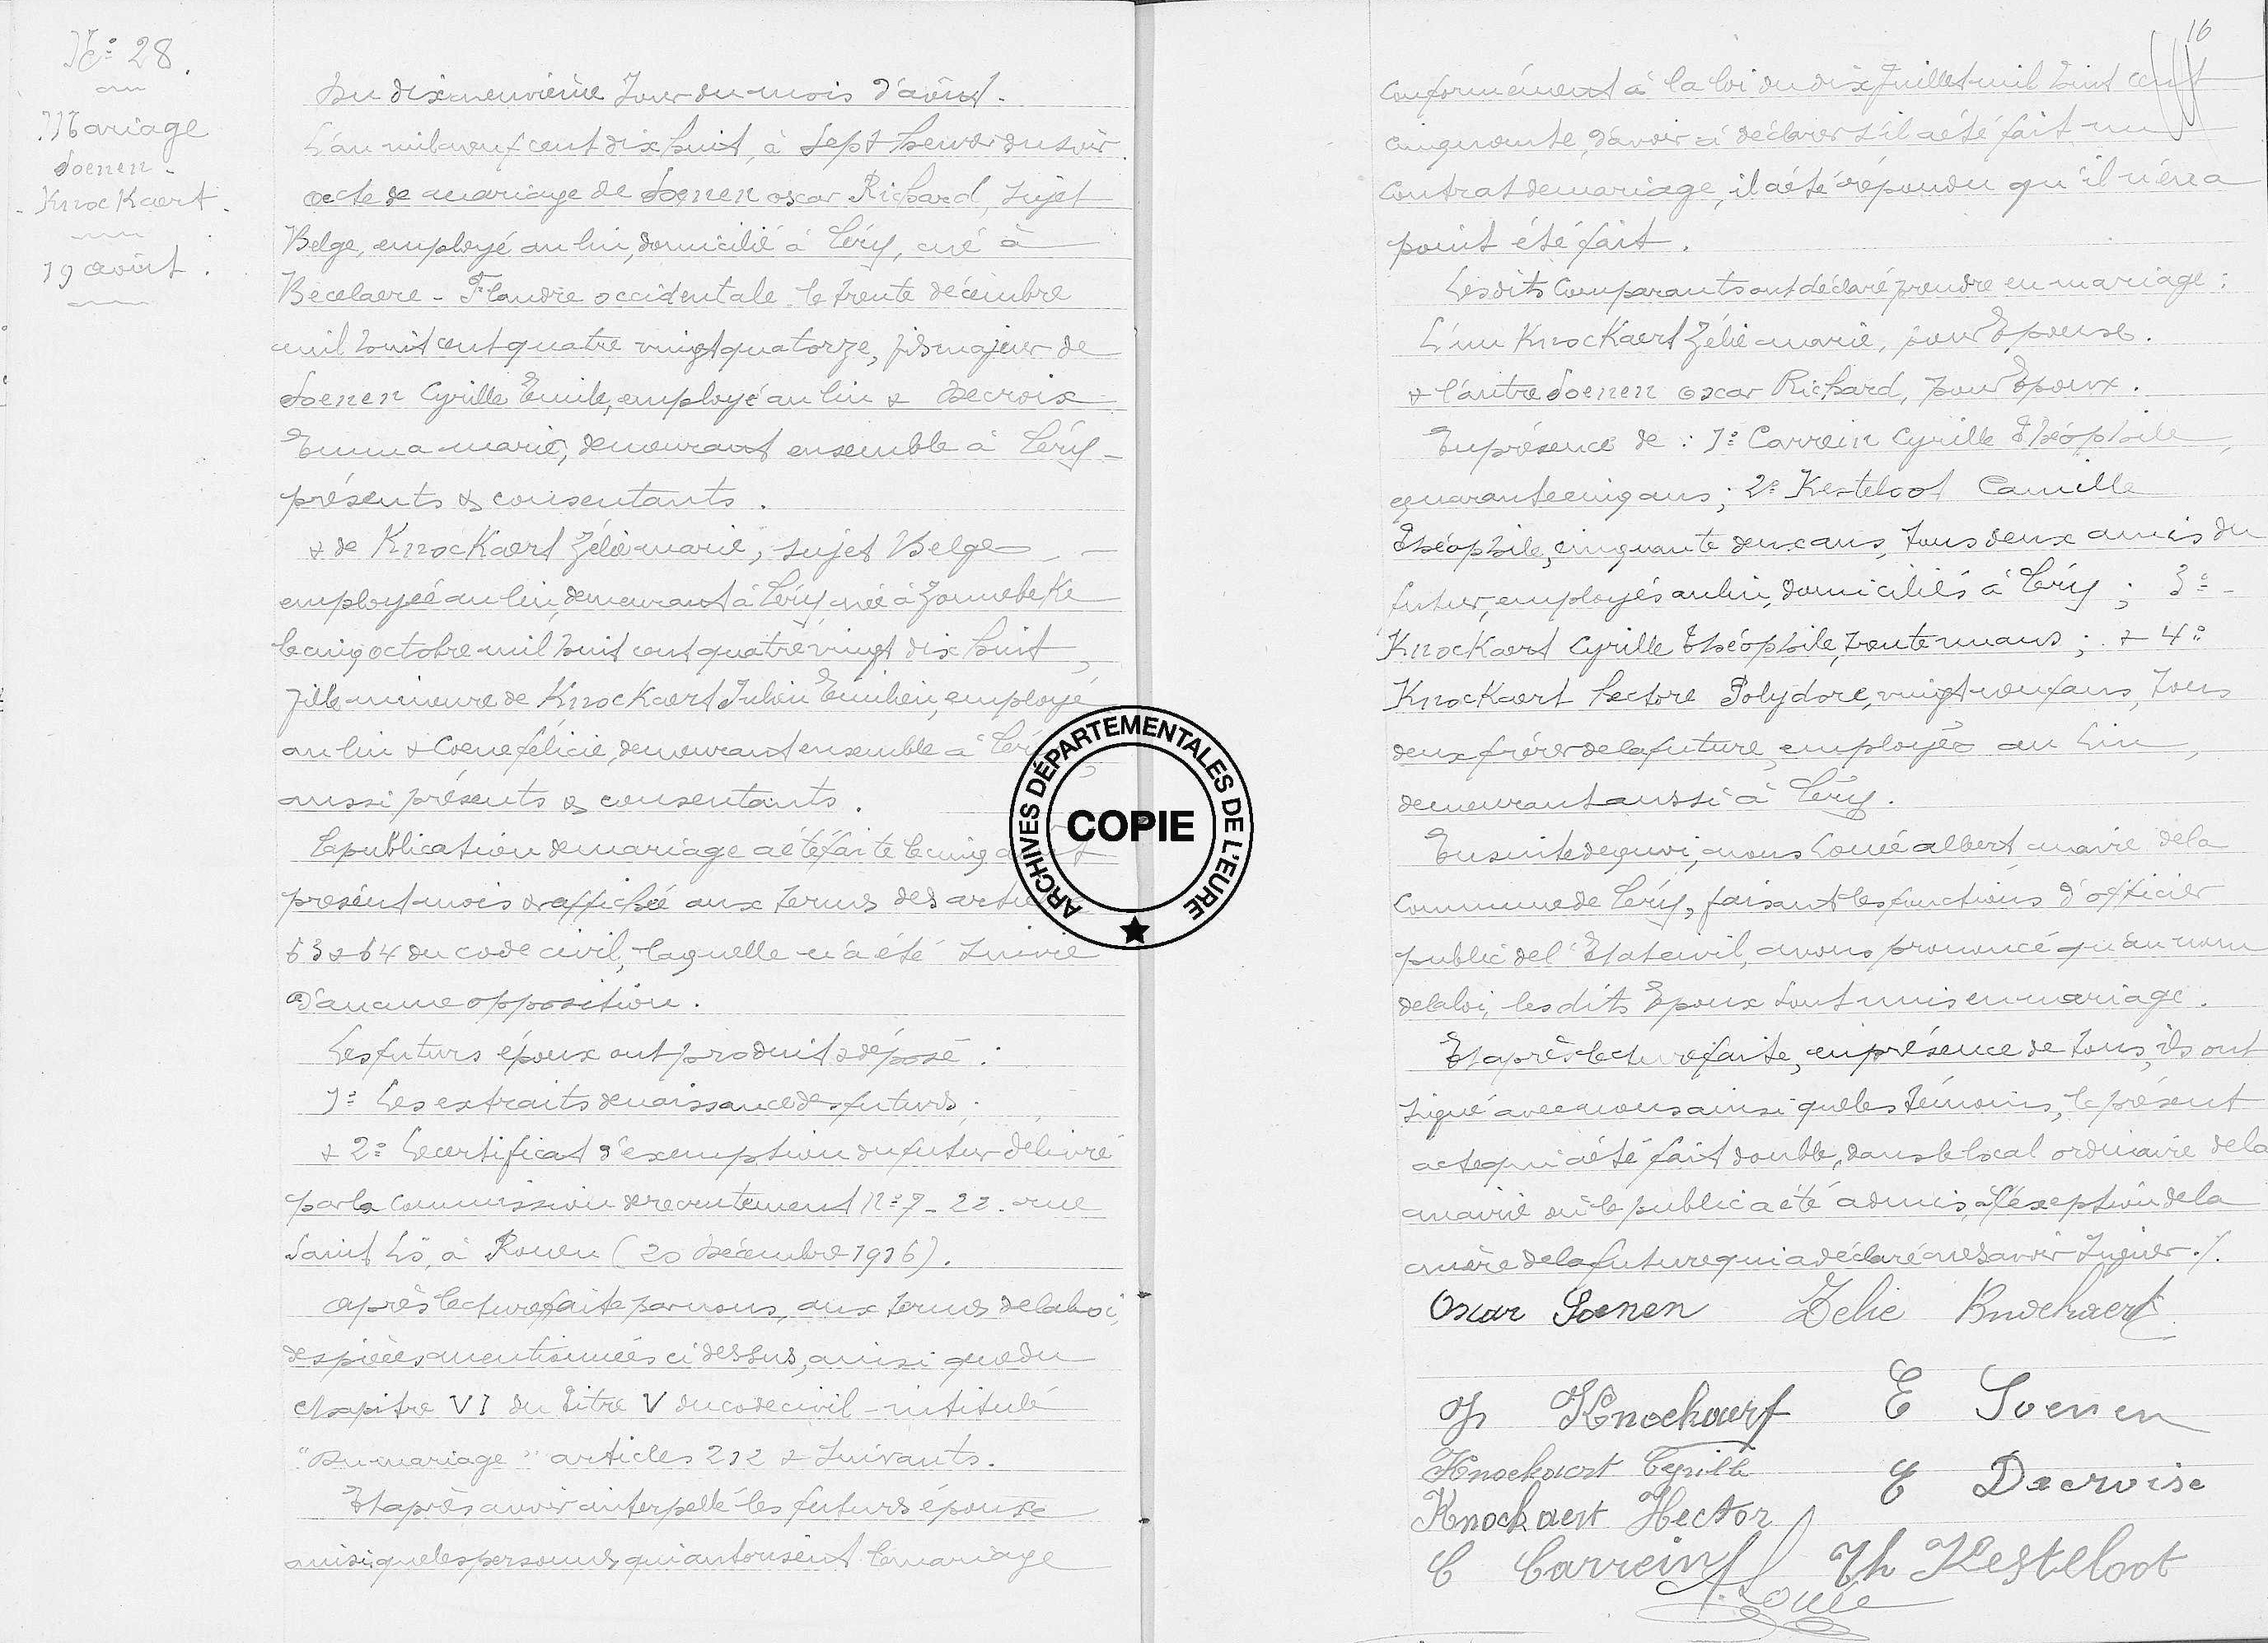 N° 28.
Mariage
Soenen -
Knockaert.
19 août.
Du dixneuvième Jour du mois d'août.
L'an mil neuf cent dix huit, à Sept heures du soir.
acte de mariage de Soenen oscar Richard, sujet
Belge, employé au lin, domicilié à Léry, né à
Bécelaere - Flandre occidentale le trente décembre
mil huit cent quatre vingt quatorze, fils majeur de
Soenen Cyrille Emile, employé au lin & Decroix
Emma marie, demeurant ensemble à Léry -
présents & consentants.
& de Knockaert Zélie marie, sujet Belge -
employée au lin, demeurant à Léry née à Zonnebeke
le cinq octobre mil huit cent quatre vingt dix huit,
fille mineure de Knockaert Julien Emilien, employé
au lin & Coene félicie, demeurant ensemble à Léry,
aussi présents & consentants.
La publication de mariage a été faite le cinq août
présent mois & affichée aux termes des articles
63 & 64 du code civil, laquelle n'a été suivie
d'aucune opposition.
Les futurs époux ont produit & déposé :
1° Les extraits de naissance des futurs;
& 2° Le certificat d'exemption du futur délivré
par la Commission de recrutement N° 7 - 22 - rue
Saint Lô, à Rouen (20 Décembre 1916).
après lecture faite par nous, aux termes de la loi,
des pièces mentionnées ci dessus, ainsi que du
chapitre VI du titre V du code civil intitulé
"Du mariage" articles 212 & suivants.
Et après avoir interpellé les futurs époux
ainsi que les personnes qui autorisent le mariage
16
conformément à la loi du dix Juillet mil huit cent
cinquante, d'avoir à déclarer s'il a été fait un
contrat de mariage, il a été répondu qu'il n'en a
point été fait.
Lesdits Comparants ont déclaré prendre en mariage :
L'un Knockaert Zélie marie, pour Epouse.
& l'autre Soenen oscar Richard, pour Epoux.
En présence de : 1° Carrein Cyrille Théophile,
quarante cinq ans; 2° Kesteloot Camille
Théophile, cinquante deux ans, tous deux amis du
futur, employés au lin, domiciliés à Léry; 3° -
Knockaert Cyrille Théophile, trente un ans; & 4°
Knockaert hectore Polydore, vingt neuf ans, tous
deux frères de la future, employés au lin,
demeurant aussi à Léry.
Ensuite de quoi, nous Loué albert maire de la
Commune de Léry, faisant les fonctions d'officier
public de l'Etat civil, avons prononcé qu'au nom
de la loi, les dits Epoux sont unis en mariage.
Et après lecture faite, en présence de tous, ils ont
signé avec nous ainsi que les témoins, le présent
acte qui a été fait double, dans le local ordinaire de la
mairie où le public a été admis, à l'exeption de la
mère de la future qui a déclaré ne savoir signer ./.
Oscar Soenen Zelie Knockaert
J Knockaert E Soenen
Knockaert Cyrille E Decroise
Knockaert Hector
C Carrein Th Kesteloot
A. Loué
ARCHIVES DÉPARTEMENTALES DE L'EURE
COPIE